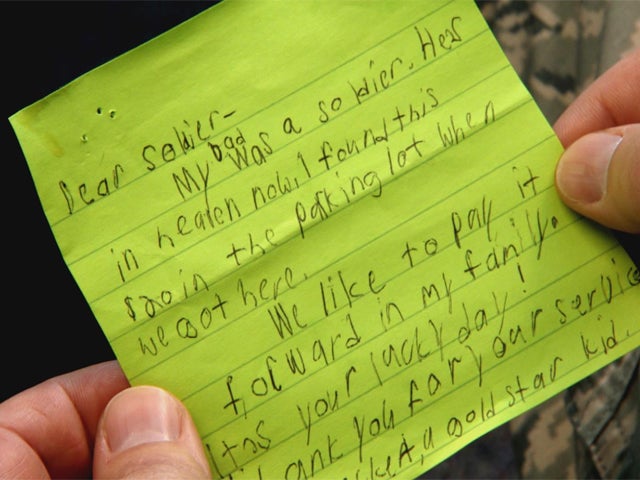 Dear Soldier-
My Dad was a soldier. Hes
in heaven now. I found this
$20 in the parking lot when
we got here.
We like to pay it
forward in my family.
Its your lucky day!
Thank you for your service
a gold star kid.